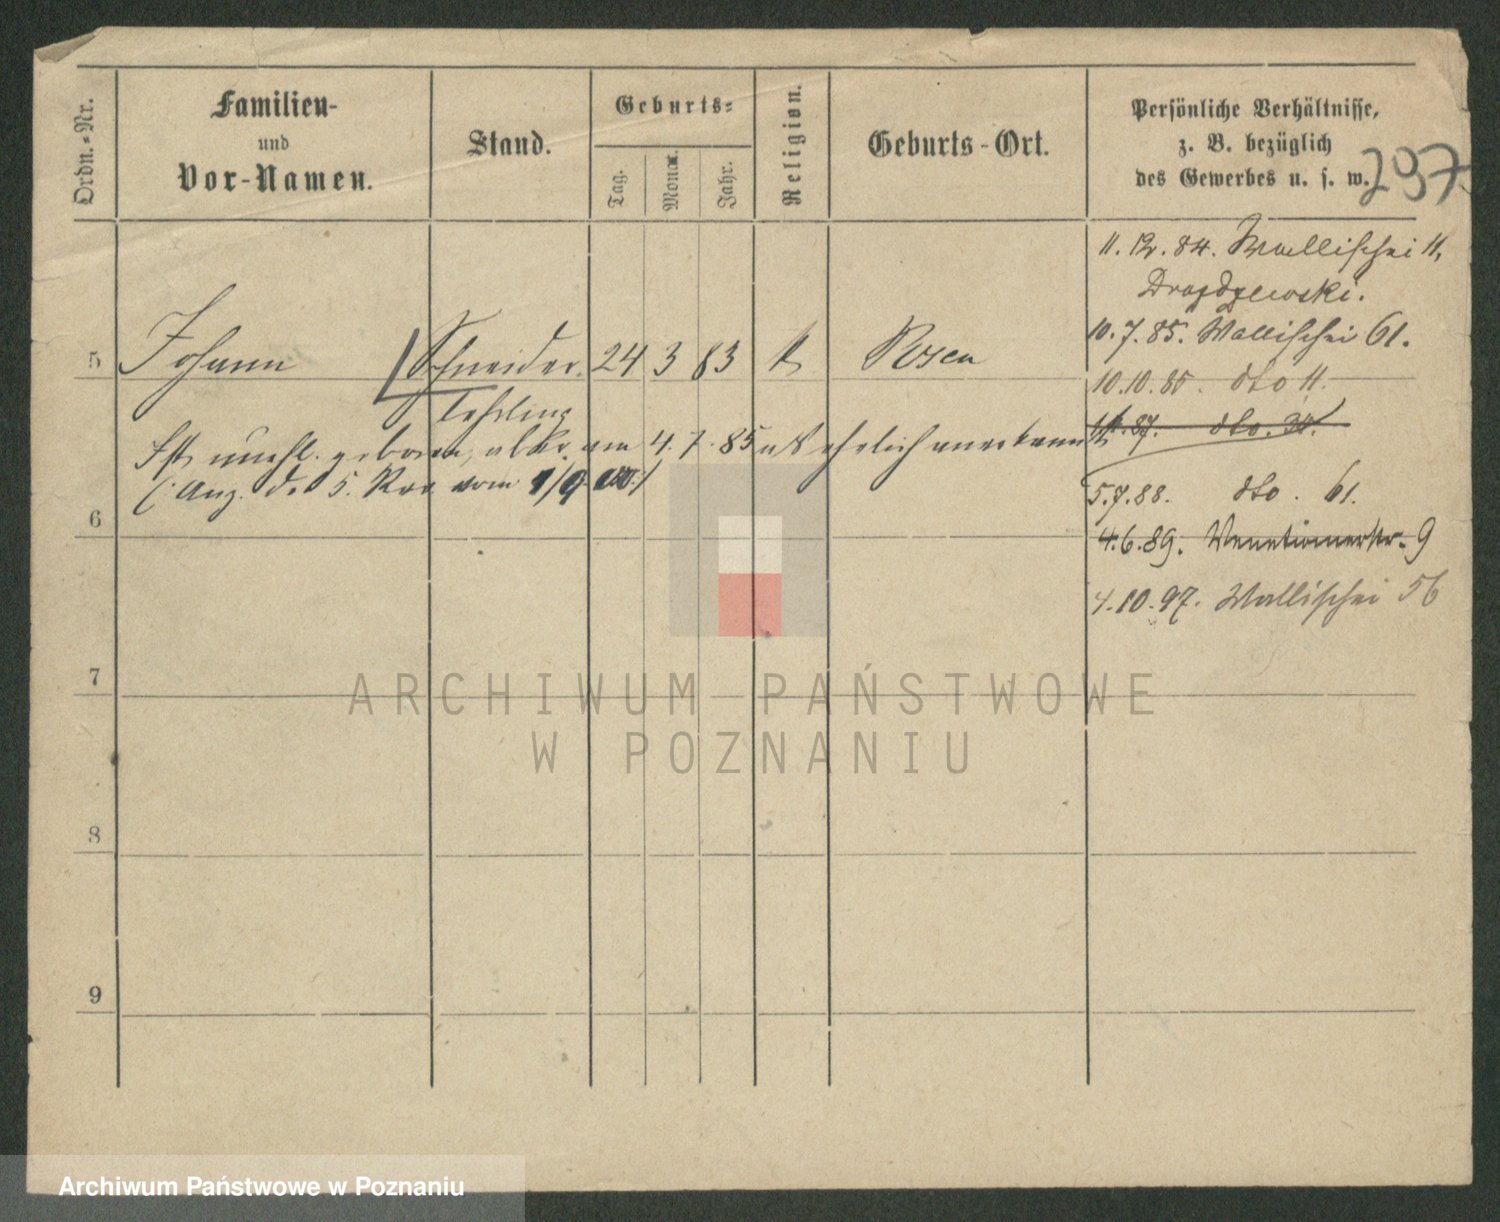 Ordn.-Nr.
Familien-
und
Vor-Namen.
Stand.
Geburts-
Tag.
Monat.
Jahr.
Religion.
Geburts-Ort.
Persönliche Verhältnisse,
z. B. bezüglich
des Gewerbes u. s. w.
297
11. 12. 84. Wallischei 11,
Drozdzewski.
10. 7. 85. Wallischei 61.
5 Johann Schneider 24 3 83 k Posen
Lehrling
10. 10. 85. dto 11.
87. dto. 34.
Ist unehl. geboren, aber am 4. 7. 85 als ehelich anerkannt
(Anz. des 5. Rev vom 1/9
5. 7. 88. dto. 61.
6
4. 6. 89. Venetianerstr. 9
4. 10. 97. Wallischei 56
7
8
9
ARCHIWUM PAŃSTWOWE
W POZNANIU
Archiwum Państwowe w Poznaniu